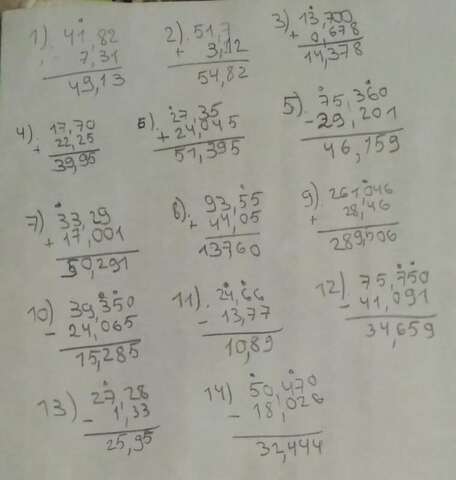 1) 41,82
7,31
49,13
2) 51,7
+ 3,12
54,82
3) 13,700
+ 0,678
14,378
4) 17,70
+ 22,25
39,95
5) 27,35
+ 24,045
51,395
5) 75,360
- 29,201
46,159
7) 33,29
+ 17,001
50,291
6) 93,55
+ 44,05
13760
9) 261,046
+ 28,46
289,506
10) 39,350
- 24,065
15,285
11) 24,66
- 13,77
10,89
12) 75,750
- 41,091
34,659
13) 27,28
- 1,33
25,95
14) 50,470
- 18,026
32,444